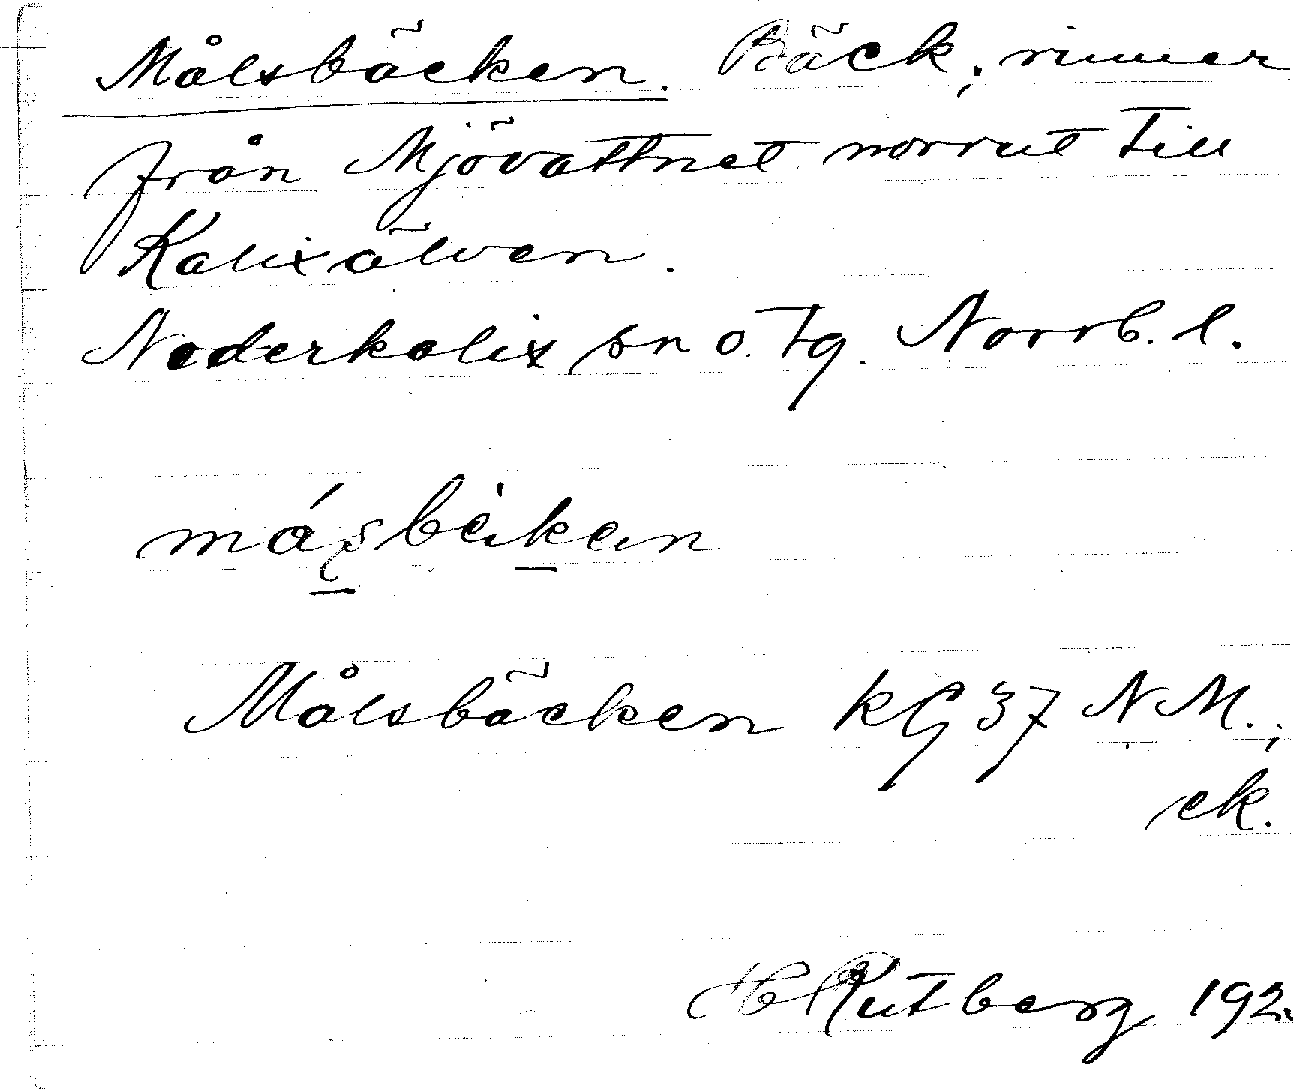 Målsbäcken. Bäck, rinner
från Mjövattnet norrut till
Kalixälven.
Nederkalix sn o. tg. Norrb. l.
Målsbäcken kG 37 NM.;
ek.
H Rutberg 192